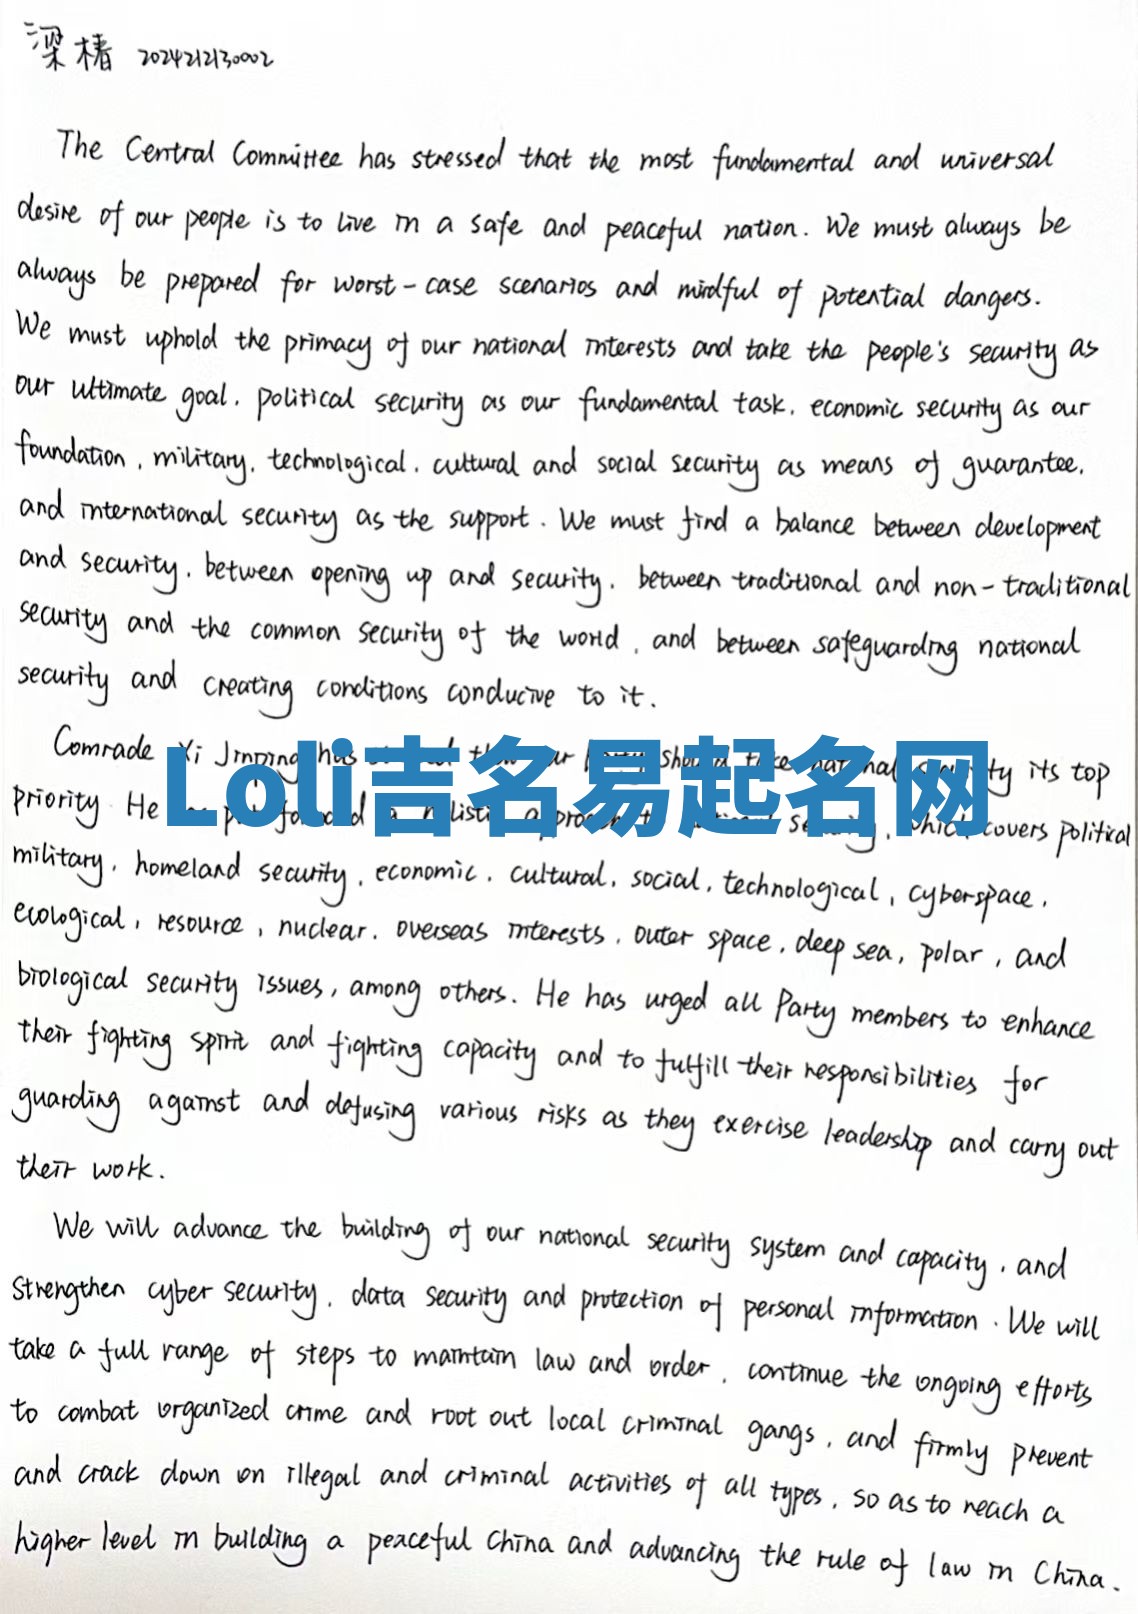 梁椿 2024212130002
The Central Committee has stressed that the most fundamental and universal
desire of our people is to live in a safe and peaceful nation. We must always be
always be prepared for worst-case scenarios and mindful of potential dangers.
We must uphold the primacy of our national interests and take the people's security as
our ultimate goal, political security as our fundamental task, economic security as our
foundation, military, technological, cultural and social security as means of guarantee,
and international security as the support. We must find a balance between development
and security, between opening up and security, between traditional and non-traditional
security and the common security of the world, and between safeguarding national
security and creating conditions conducive to it.
Comrade Xi Jinping has should its top
Loli吉名易起名网
priority He which covers political
military, homeland security, economic, cultural, social, technological, cyberspace,
ecological, resource, nuclear, overseas interests, outer space, deep sea, polar, and
biological security issues, among others. He has urged all Party members to enhance
their fighting spirit and fighting capacity and to fulfill their responsibilities for
guarding against and defusing various risks as they exercise leadership and carry out
their work.
We will advance the building of our national security system and capacity, and
strengthen cyber security, data security and protection of personal information. We will
take a full range of steps to maintain law and order, continue the ongoing efforts
to combat organized crime and root out local criminal gangs, and firmly prevent
and crack down on illegal and criminal activities of all types, so as to reach a
higher level in building a peaceful China and advancing the rule of law in China.